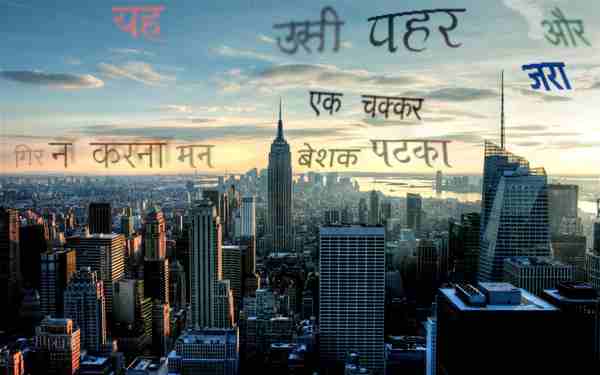 यह उसी पहर और
जरा
एक चक्कर
गिर न करना मन बेशक पटका